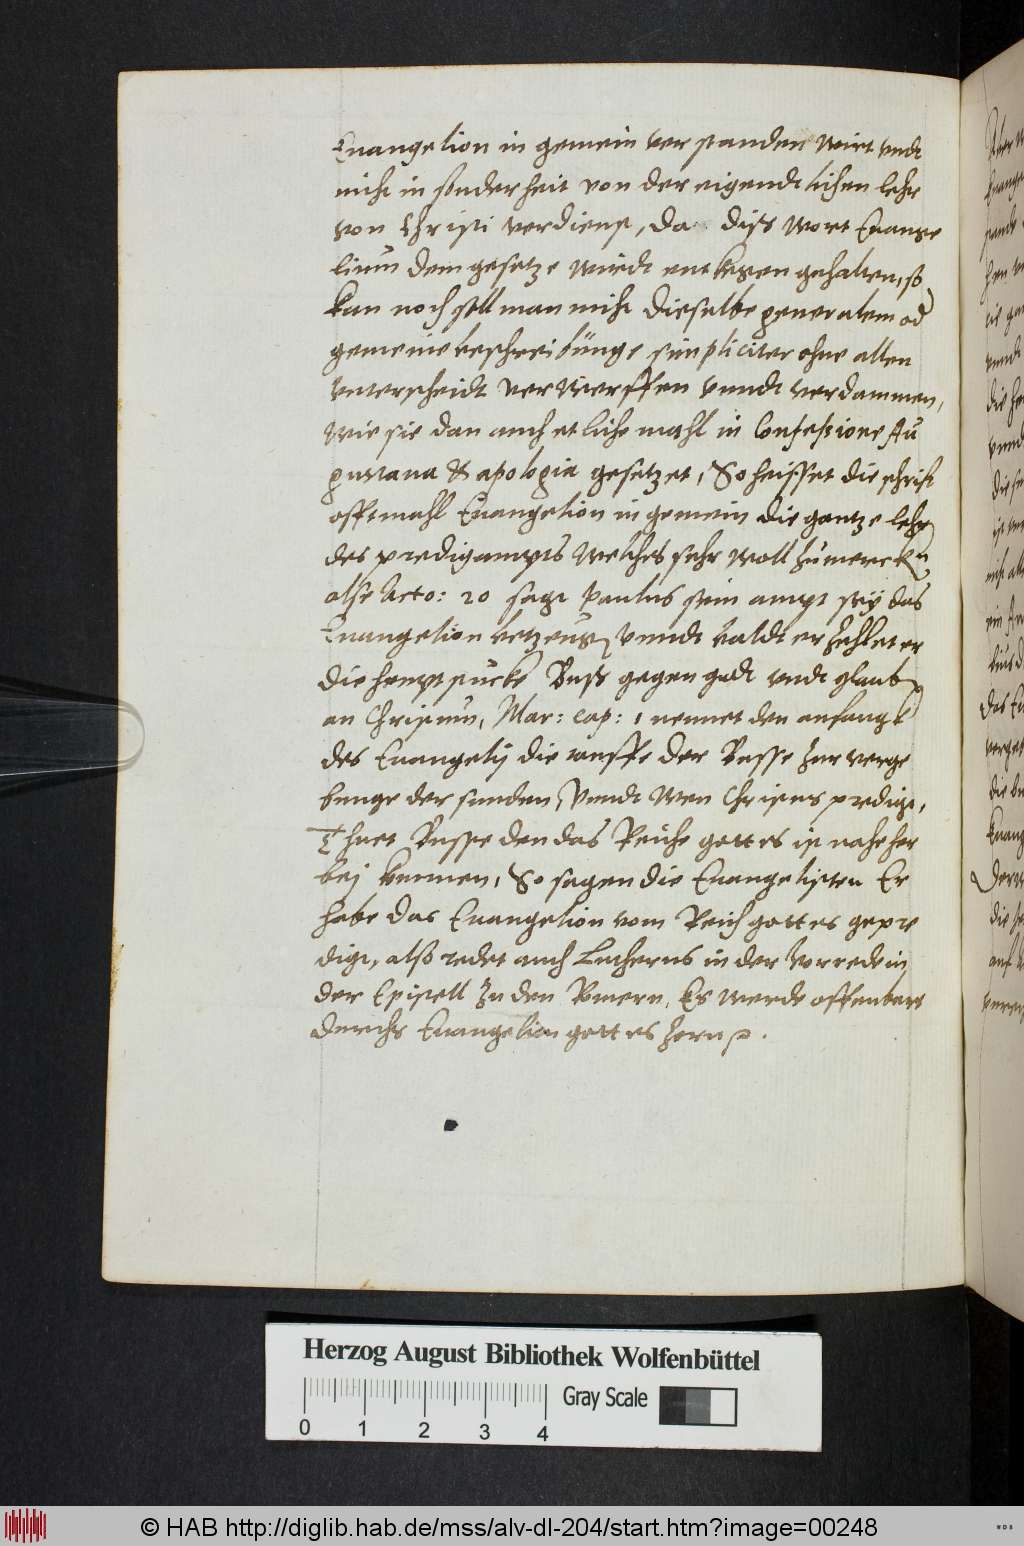 Euangelion in gemein verstanden wirt vndt
nicht in sonderheit von der eigendtlichen lehr
von Christi verdienst, da diss wort Euange
lium dem gesetze wirdt entkegen gehalten, so
kan noch soll man nicht dieselbe generalem od
gemeine beschreibunge simpliciter ohne allen
vnterscheidt verwerffen vnndt verdammen,
wie sie dan auch etliche mahl in Confessione Au
gustana & apologia gesetzet, So heisset die schrift
offtmahl Euangelion in gemein die gantze lehr
des predigampts welches sehr woll zumercken
alse Acto: 20 sagt Paulus sein ampt sey das
Euangelion betzeugen vnndt baldt erzehlet er
die heuptstucke Buss gegen godt vndt glauben
an Christum, Mar: cap: 1 nennet den anfangk
des Euangelij die tauffe der Busse zur verge
bunge der sunden, Vnndt wen Christus predigt,
Thuet Busse den das Reiche gottes ist nahe her
bej kummen, So sagen die Euangelisten Er
habe das Euangelion vom Reich gottes gepre
digt, also redet auch Lutherus in der Vorrede in
der Epistell zu den Romern, Es werde offenbart
durchs Euangelion gottes zorn
Herzog August Bibliothek Wolfenbüttel
0 1 2 3 4
Gray Scale
© HAB http://diglib.hab.de/mss/alv-dl-204/start.htm?image=00248